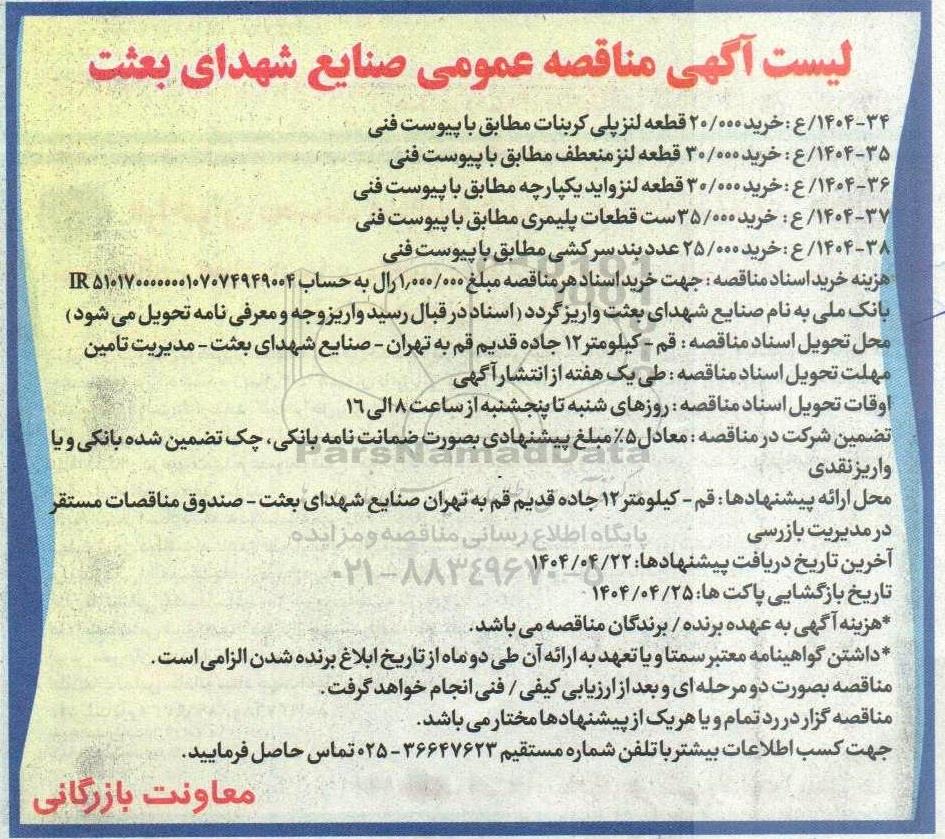 لیست آگهی مناقصه عمومی صنایع شهدای بعثت
۱۴۰۴-۳۴/ع : خرید ۲۰/۰۰۰ قطعه لنز پلی کربنات مطابق با پیوست فنی
۱۴۰۴-۳۵/ع : خرید ۳۰/۰۰۰ قطعه لنز منعطف مطابق با پیوست فنی
۱۴۰۴-۳۶/ع : خرید ۳۰/۰۰۰ قطعه لنز واید یکپارچه مطابق با پیوست فنی
۱۴۰۴-۳۷/ع : خرید ۳۵/۰۰۰ ست قطعات پلیمری مطابق با پیوست فنی
۱۴۰۴-۳۸/ع : خرید ۲۵/۰۰۰ عدد بند سر کشی مطابق با پیوست فنی
هزینه خرید اسناد مناقصه : جهت خرید اسناد هر مناقصه مبلغ ۱٫۰۰۰/۰۰۰ رال به حساب IR ۵۱۰۱۷۰۰۰۰۰۰۰۱۰۷۰۷۴۹۴۹۰۰۴
بانک ملی به نام صنایع شهدای بعثت واریز گردد (اسناد در قبال رسید واریز وجه و معرفی نامه تحویل می شود)
محل تحویل اسناد مناقصه : قم - کیلومتر ۱۲ جاده قدیم قم به تهران - صنایع شهدای بعثت - مدیریت تامین
مهلت تحویل اسناد مناقصه : طی یک هفته از انتشار آگهی
اوقات تحویل اسناد مناقصه : روزهای شنبه تا پنجشنبه از ساعت ۸ الی ۱۶
تضمین شرکت در مناقصه : معادل ۵٪ مبلغ پیشنهادی بصورت ضمانت نامه بانکی ، چک تضمین شده بانکی و یا
واریز نقدی
محل ارائه پیشنهادها : قم - کیلومتر ۱۲ جاده قدیم قم به تهران صنایع شهدای بعثت - صندوق مناقصات مستقر
در مدیریت بازرسی
آخرین تاریخ دریافت پیشنهادها: ۱۴۰۴/۰۴/۲۲
تاریخ بازگشایی پاکت ها: ۱۴۰۴/۰۴/۲۵
*هزینه آگهی به عهده برنده / برندگان مناقصه می باشد.
*داشتن گواهینامه معتبر سمتا و یا تعهد به ارائه آن طی دو ماه از تاریخ ابلاغ برنده شدن الزامی است.
مناقصه بصورت دو مرحله ای و بعد از ارزیابی کیفی / فنی انجام خواهد گرفت.
مناقصه گزار در رد تمام و یا هر یک از پیشنهادها مختار می باشد.
جهت کسب اطلاعات بیشتر با تلفن شماره مستقیم ۳۶۶۴۷۶۲۳ - ۰۲۵ تماس حاصل فرمایید.
معاونت بازرگانی
ParsNamadData
پایگاه اطلاع رسانی مناقصه و مزایده
۰۲۱-۸۸۳۴۹۶۷۰-۵